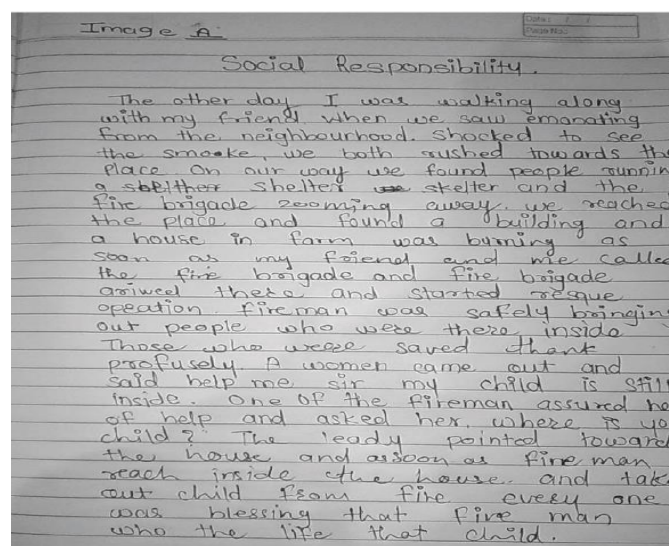 Image A
Date : / /
Page No.:
Social Responsibility.
The other day I was walking along
with my friend when we saw emanating
from the neighbourhood. Shocked to see
the smooke, we both rushed towards the
Place On our way we found people runnin
a shelter skelter and the
fire brigade zooming away. we reached
the place and found a building and
a house in farm was burning as
soon as my friend and me called
the fire brigade and fire brigade
ariweel there and started resque
opeation. fireman was safely bringin
out people who were there inside
Those who weese saved thank
profusely. A women came out and
said help me sir my child is still
inside. One of the fireman assured he
of help and asked her, where is yo
child? The leady pointed toward
the house and assoon as fire man
reach inside the house. and tak
out child from fire every one
was blessing that fire man
who the life that child.